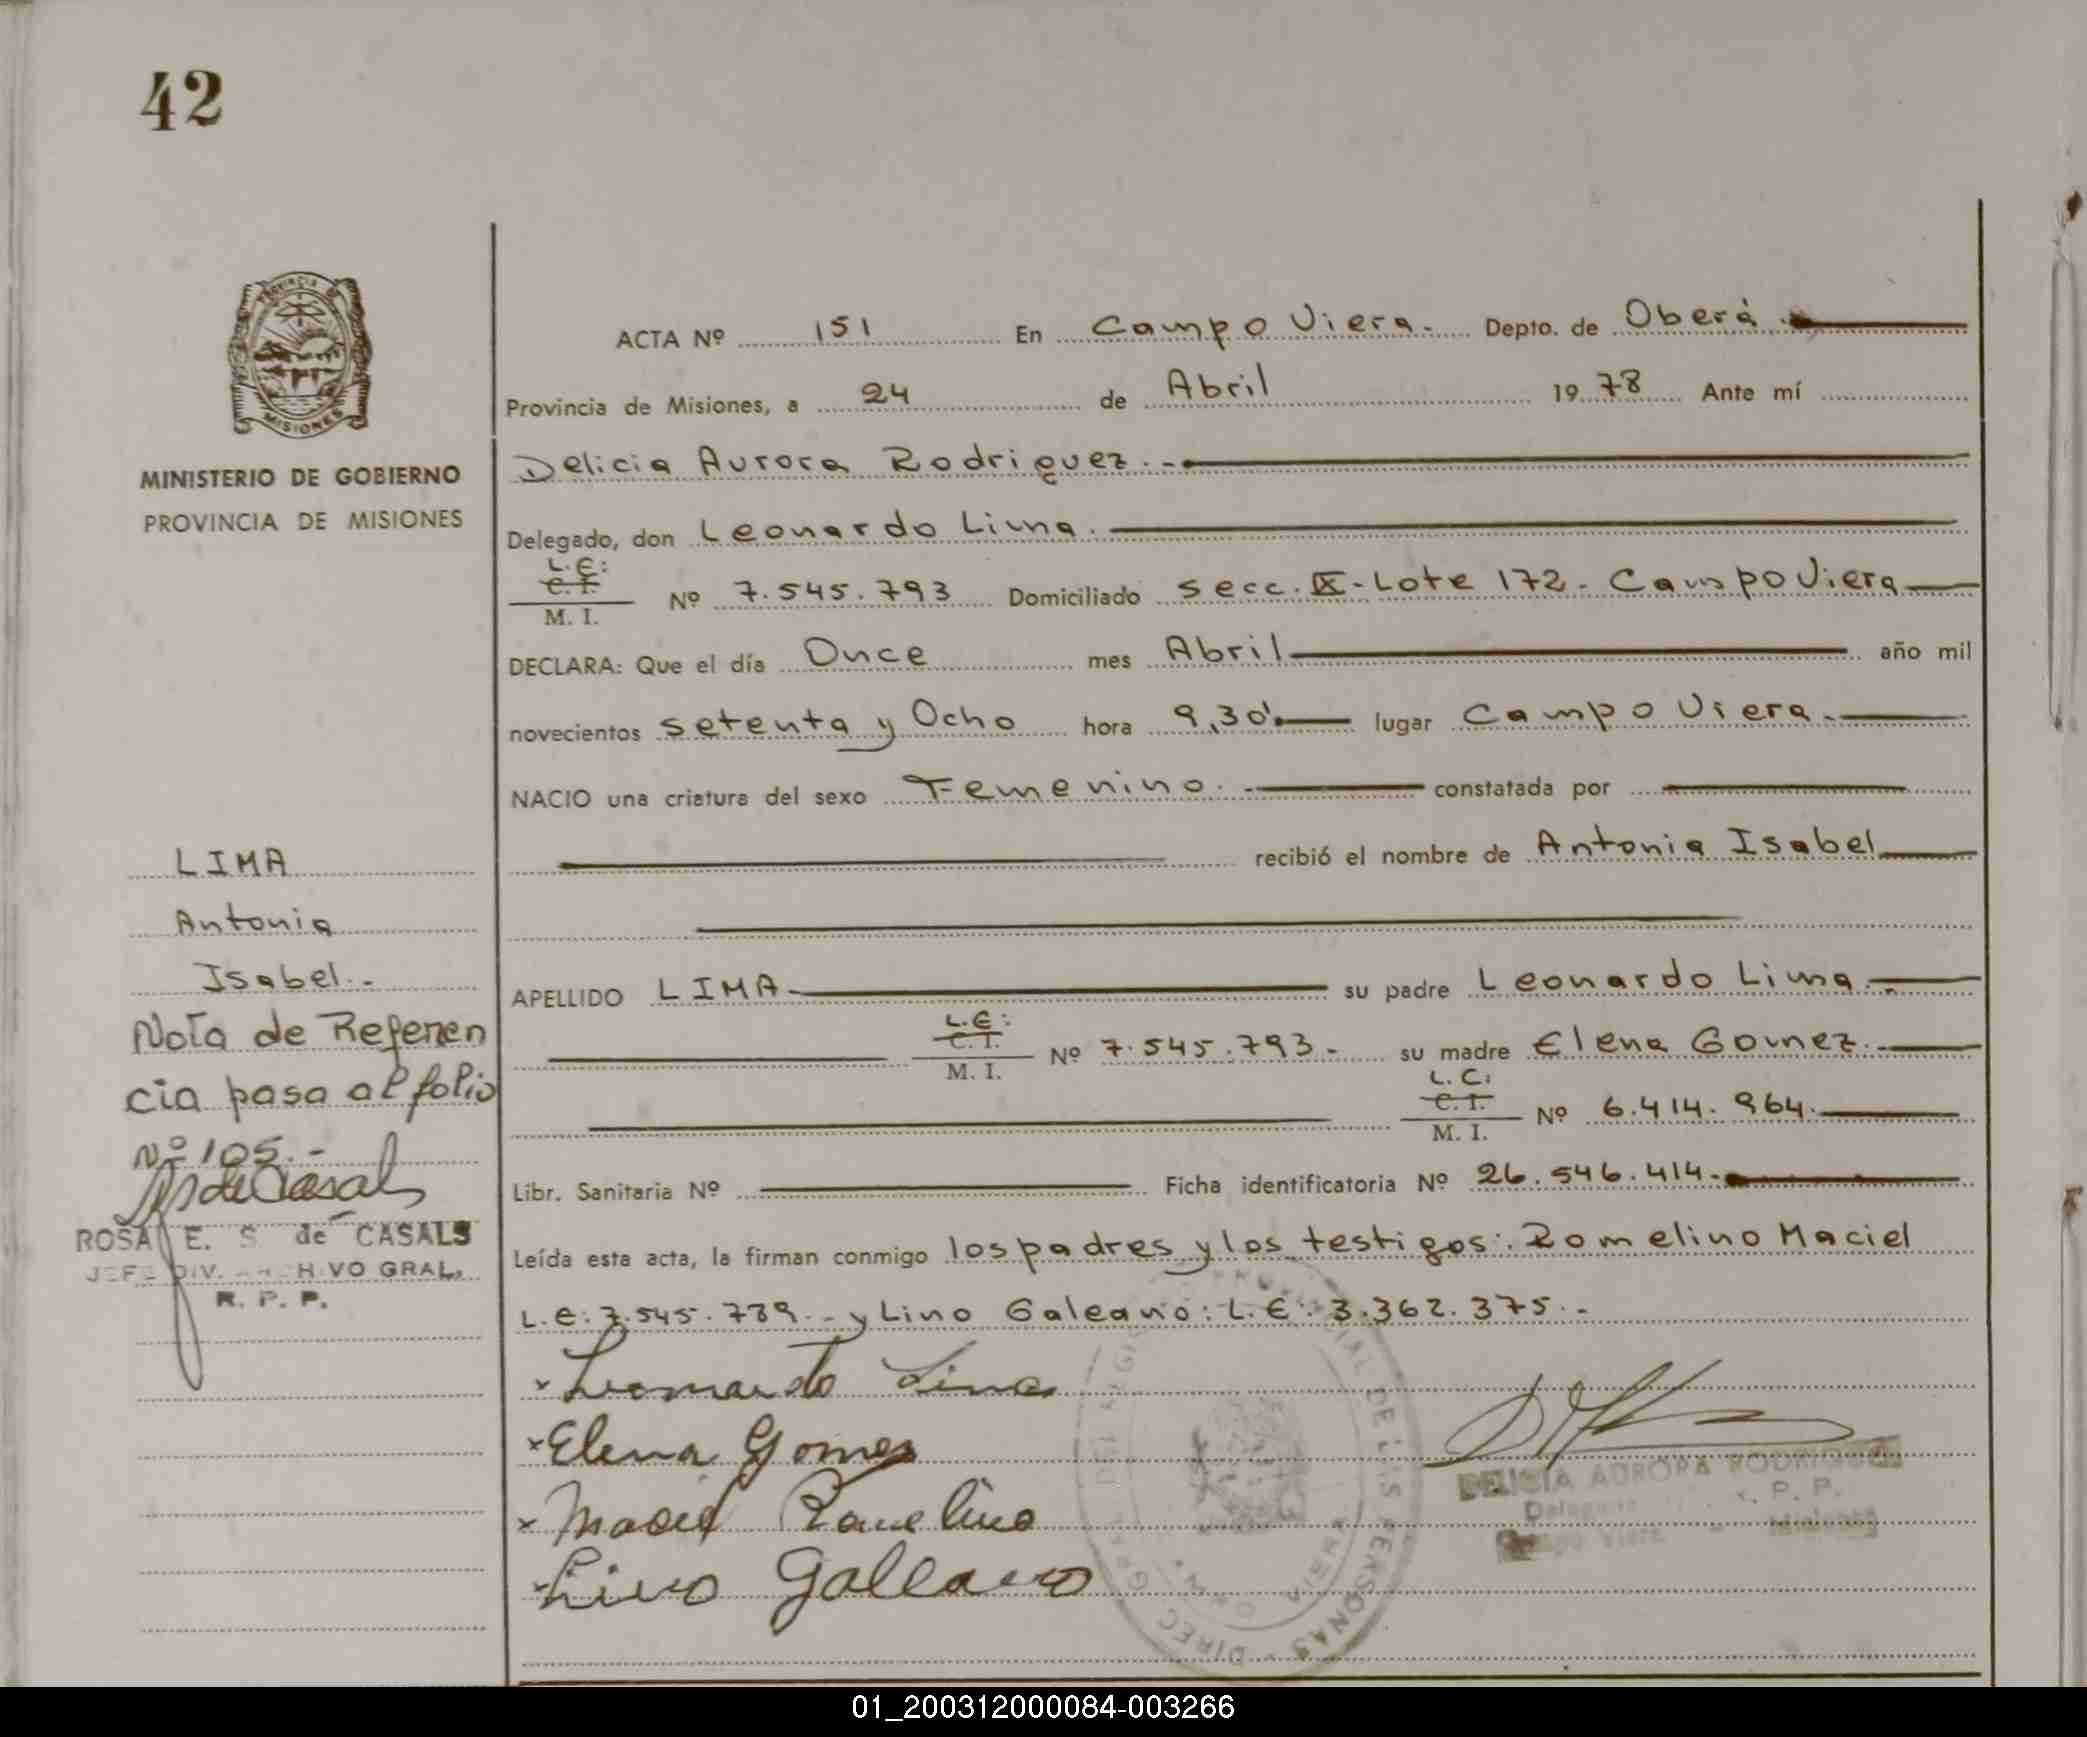 42
PROVINCIA DE
MISIONES
MINISTERIO DE GOBIERNO
PROVINCIA DE MISIONES
LIMA
Antonia
Isabel.-
Nota de Referen
cia pasa al folio
Nº 105.-
RS de Casals
ROSA E. S. de CASALS
JEFE DIV. ARCHIVO GRAL.
R. P. P.
ACTA Nº 151 En Campo Viera. Depto. de Oberá.
Provincia de Misiones, a 24 de Abril 1978 Ante mí
Delicia Aurora Rodriguez.-
Delegado, don Leonardo Lima.
L.E:
C. I.
M. I. Nº 7.545.793 Domiciliado Secc. IX-Lote 172. Campo Viera
DECLARA: Que el día Once mes Abril año mil
novecientos setenta y Ocho hora 9,30'. lugar Campo Viera.
NACIO una criatura del sexo Femenino.- constatada por
recibió el nombre de Antonia Isabel
APELLIDO LIMA su padre Leonardo Lima.
L.E:
C. I.
M. I. Nº 7.545.793.- su madre Elena Gomez.
L.C:
C. I.
M. I. Nº 6.414.964.
Libr. Sanitaria Nº Ficha identificatoria Nº 26.546.414.
Leída esta acta, la firman conmigo los padres y los testigos: Romelino Maciel
L.E: 7.545.789.- y Lino Galeano: L.E: 3.362.375.-
x Leonardo Lima
x Elena Gomez
x Maciel Romelino
x Lino Galleano
DELICIA AURORA RODRIGUEZ
Delegada R. P. P.
Campo Viera - Misiones
01_200312000084-003266